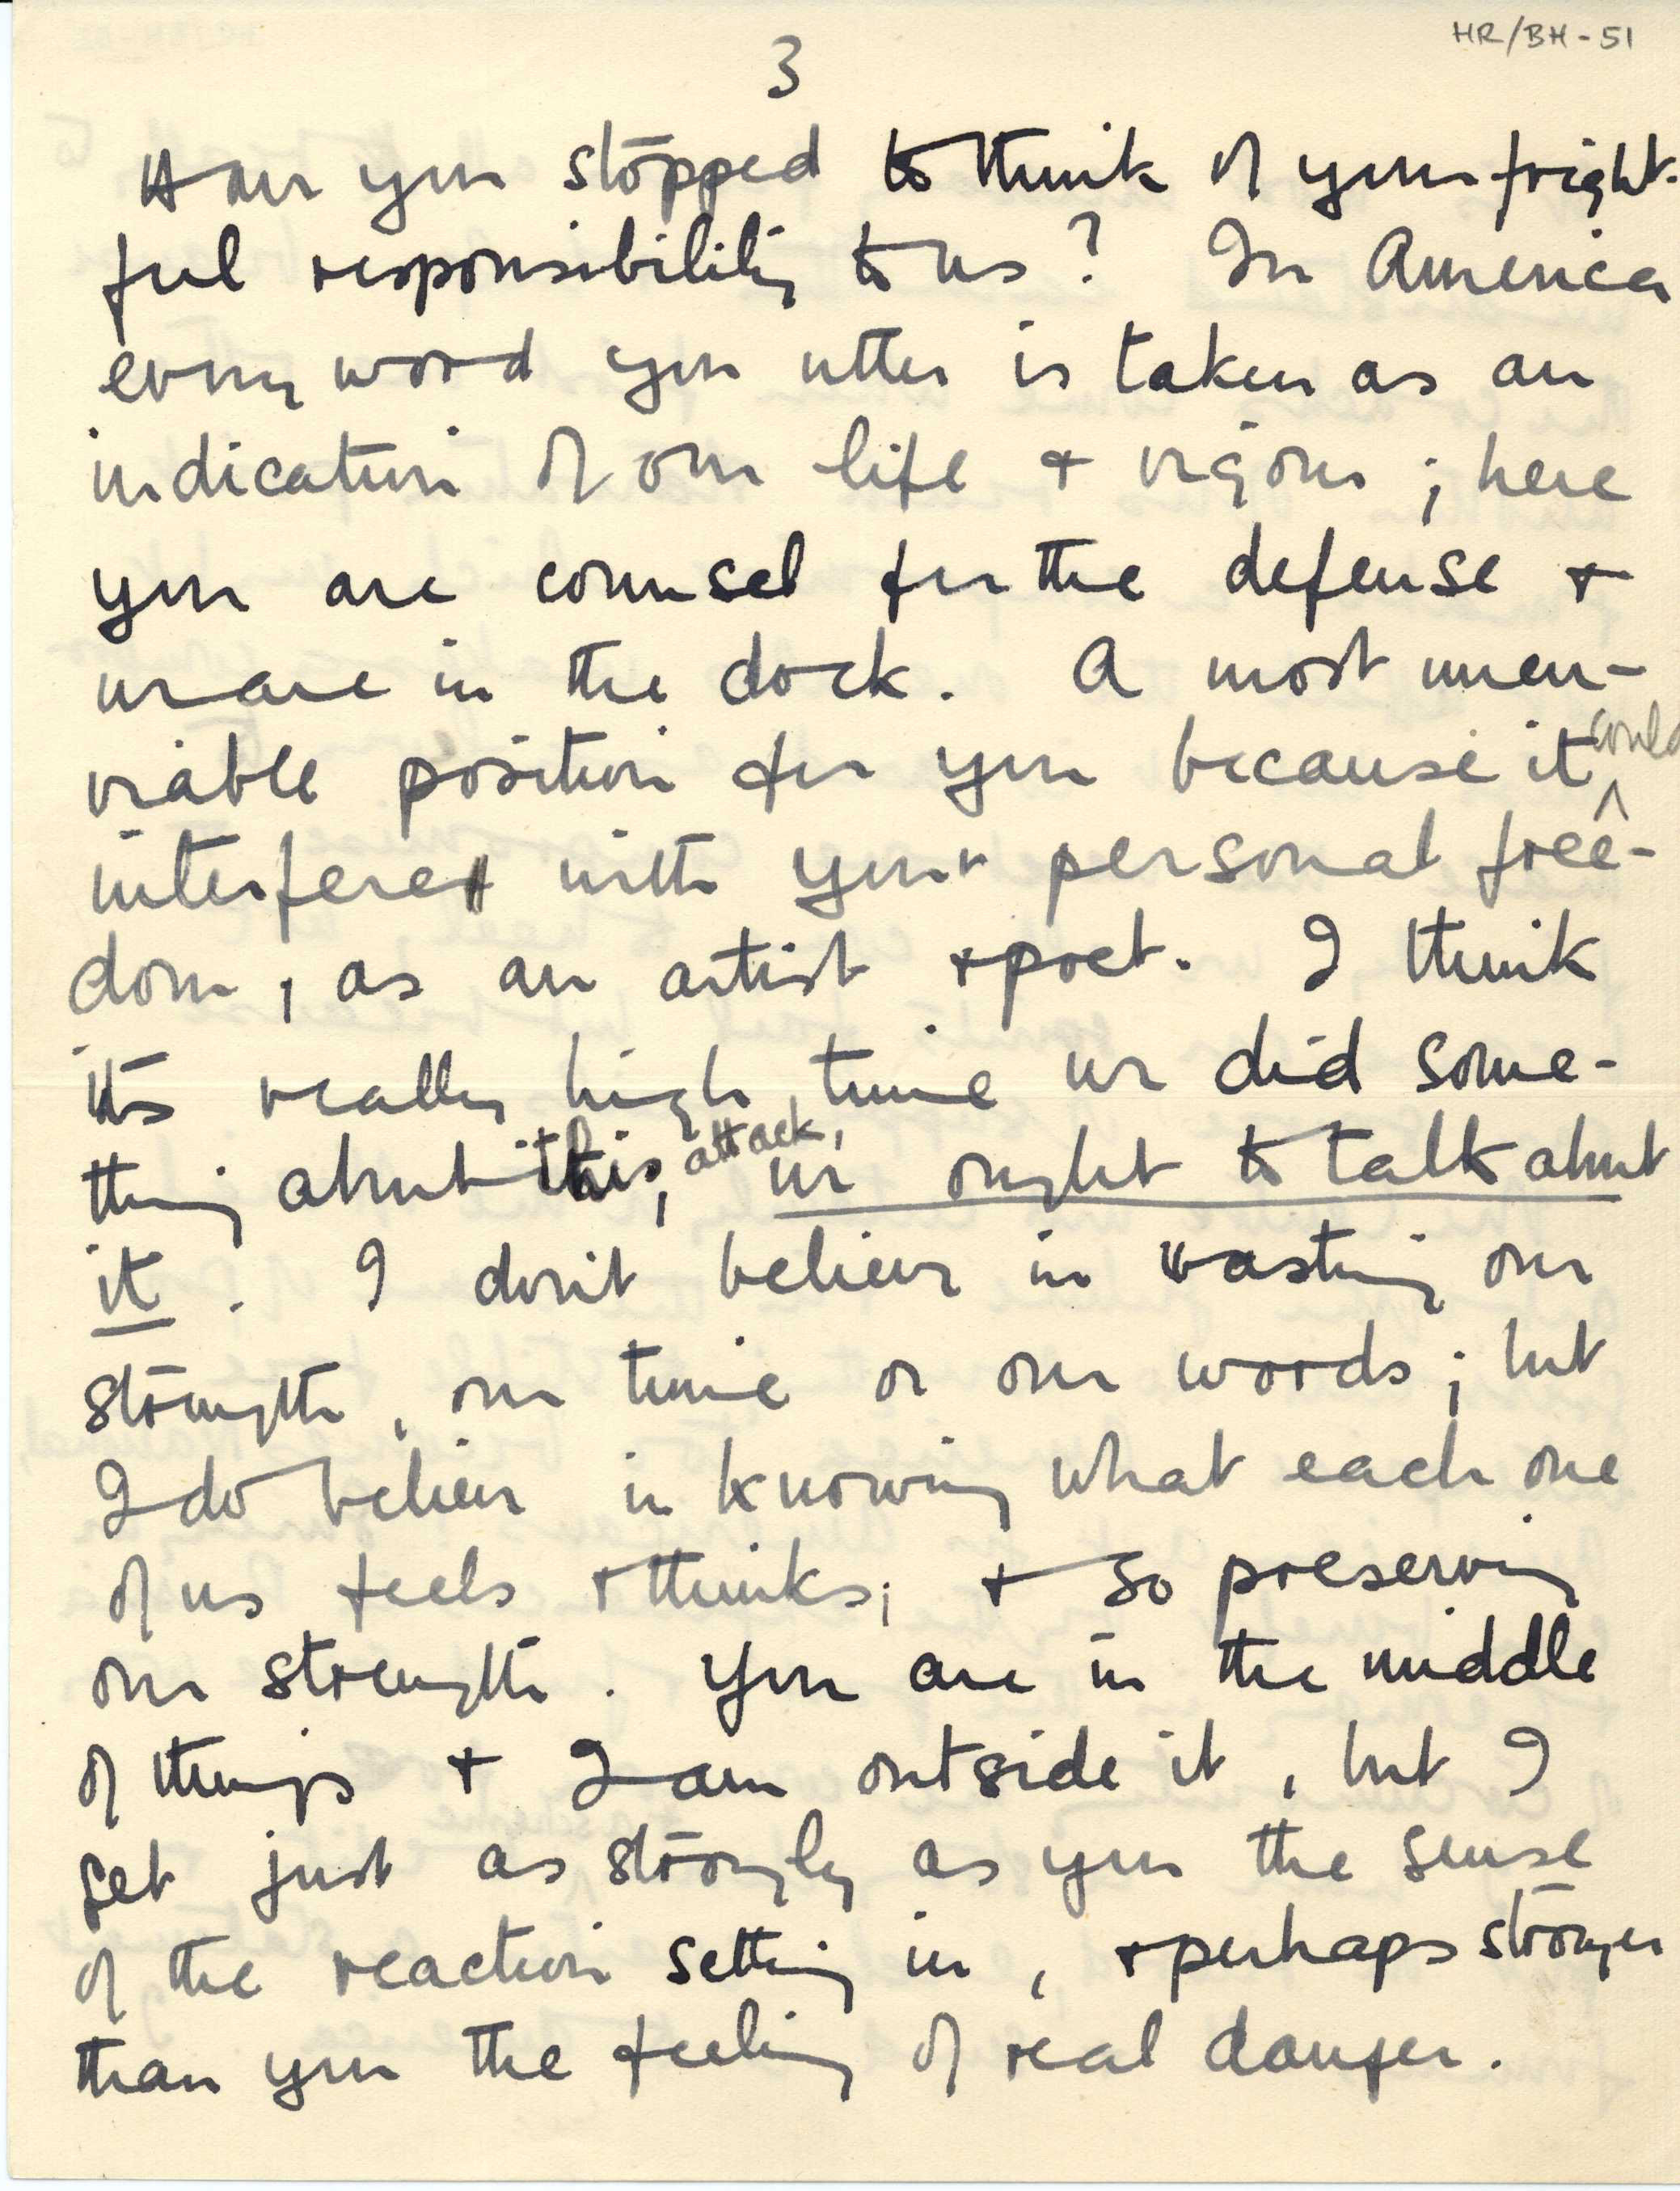 HR/BH-51
3
Have you stopped to think of your fright-
ful responsibility to us? In America
every word you utter is taken as an
indication of our life + vigour; here
you are counsel for the defense +
we are in the dock. A most unen-
viable position for you because it could
interfere with your personal free-
dom, as an artist + poet. I think
its really high time we did some-
thing about this, attack, we ought to talk about
it. I don't believe in wasting our
strength, our time or our words; but
I do believe in knowing what each one
of us feels + thinks; + so preserving
our strength. You are in the middle
of things + I am outside it, but I
get just as strongly as you the sense
of the reaction setting in, + perhaps stronger
than you the feeling of real danger.